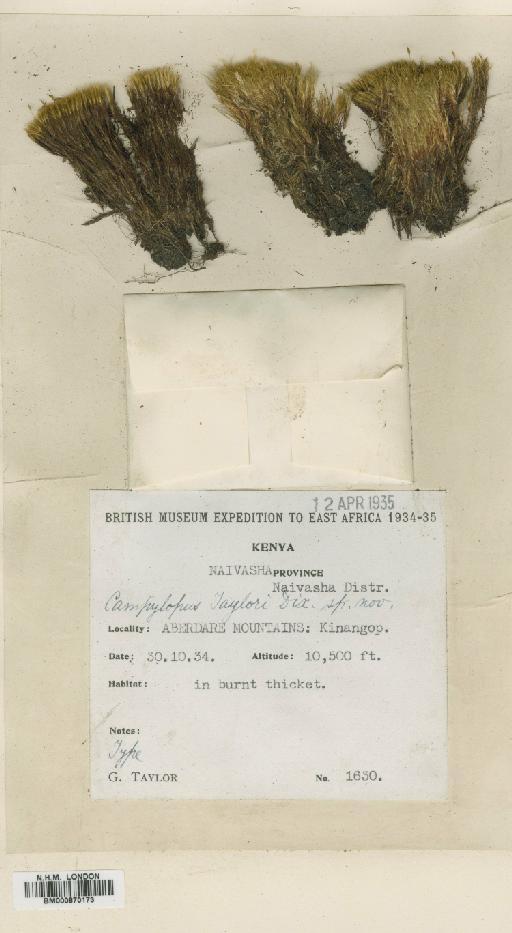 12 APR 1935
BRITISH MUSEUM EXPEDITION TO EAST AFRICA 1934-35
KENYA
NAIVASHA PROVINCE
Naivasha Distr.
Campylopus Taylori Dix. sp. nov.
Locality: ABERDARE MOUNTAINS: Kinangop.
Date; 30.10.34. Altitude: 10,500 ft.
Habitat: in burnt thicket.
Notes:
Type
G. TAYLOR No. 1630.
N.H.M. LONDON
BM000870173